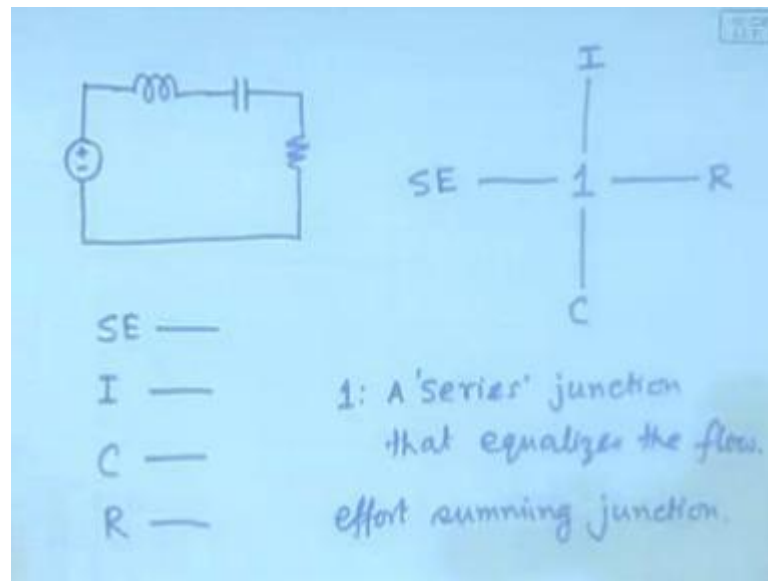 I
SE — 1 — R
C
SE —
I —
C —
R —
1: A 'series' junction
that equalizes the flow.
effort summing junction.